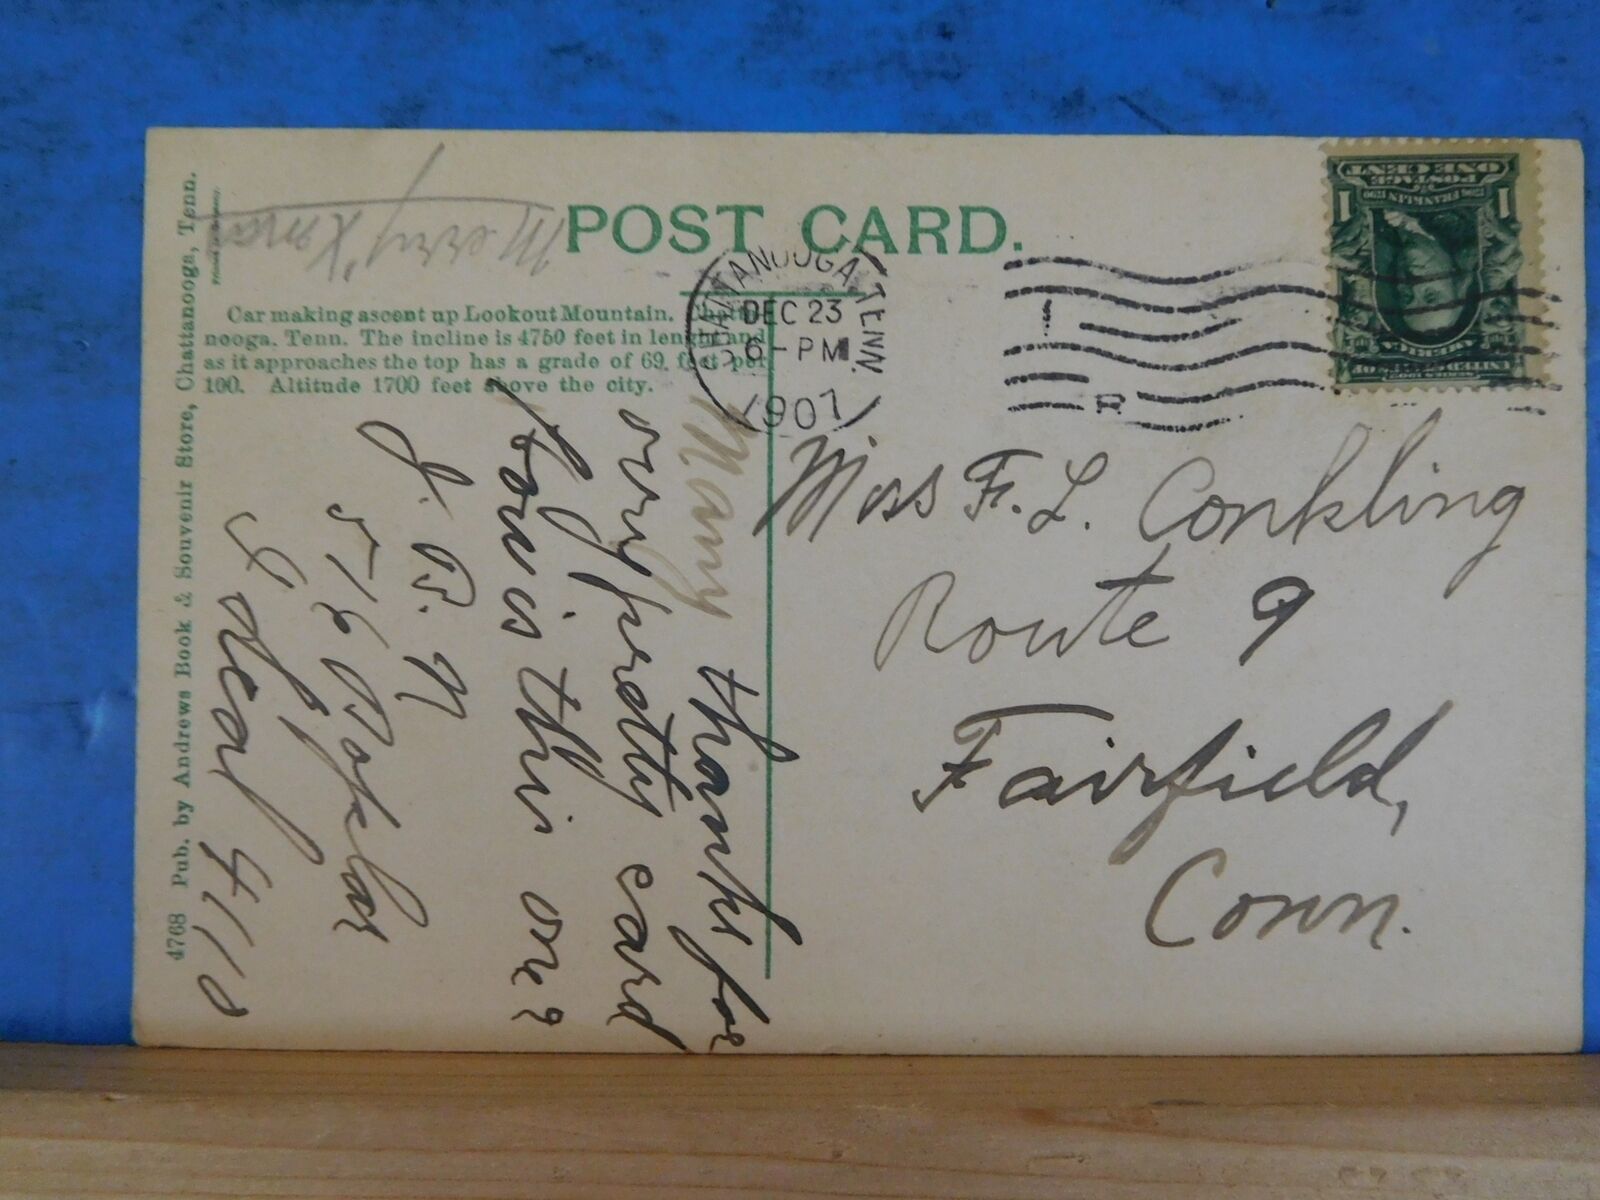 POST CARD.
Merry Xmas
Car making ascent up Lookout Mountain. Chatta-
nooga. Tenn. The incline is 4750 feet in lenght and
as it approaches the top has a grade of 69. feet per
100. Altitude 1700 feet above the city.
4768 Pub. by Andrews Book & Souvenir Store, Chattanooga, Tenn.
Printed in Germany.
CHATTANOOGA, TENN.
DEC 23
6 - PM
1907
R
ONE CENT
POSTAGE
FRANKLIN
1 1
UNITED STATES OF
AMERICA
Many thanks for
very pretty card
How is this one?
J. B. N
516 Poplar
Miss F. L. Conkling
Route 9
Fairfield,
Conn.